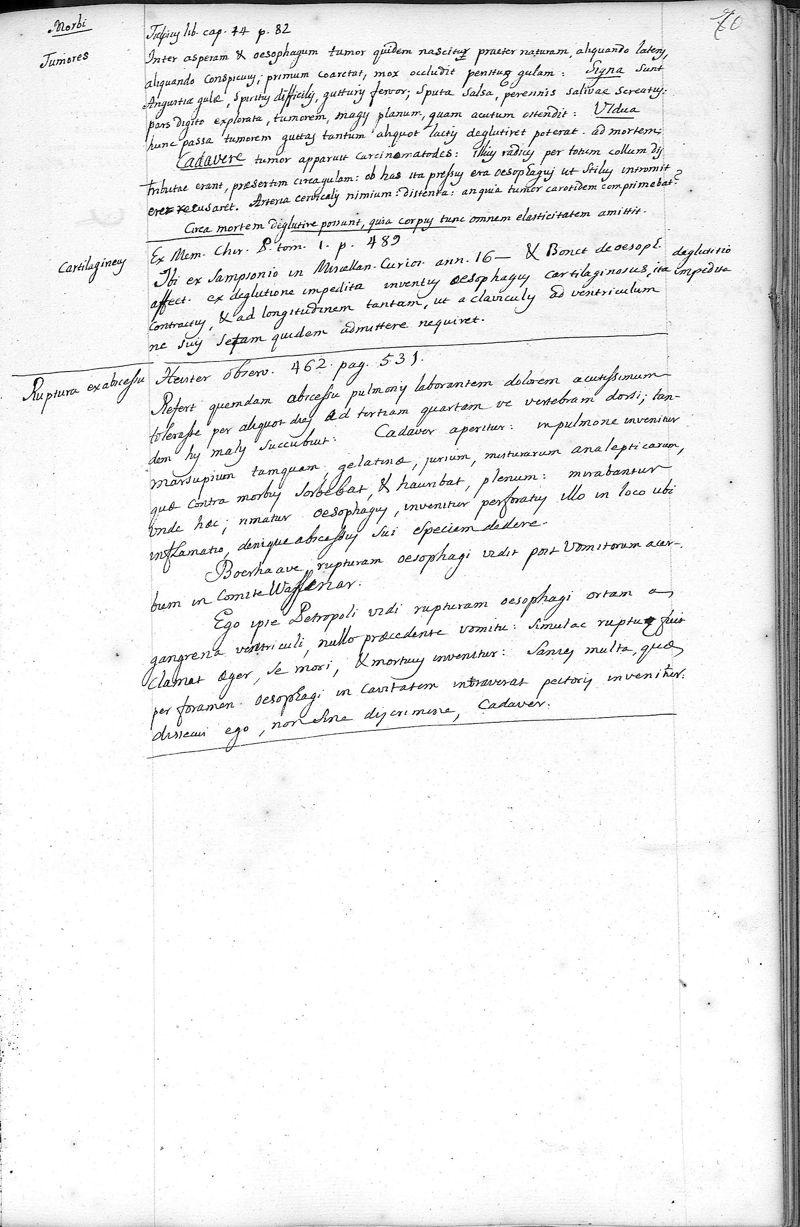 Morbi
60
Tumores
Tulpius lib. cap. 44 p. 82
Inter asperam & oesophagum tumor quidem nascitur praeter naturam, aliquando latens,
aliquando conspicuus; primum coarctat, mox occludit penitus gulam: Signa sunt
Angustia gulae, spiritus difficilis, gutturis fervor; sputa salsa, perennis salivae screatus:
pars digito explorata, tumorem, magis planum, quam acutum ostendit: Vidua
hunc passa tumorem guttas tantum aliquot lactis deglutire poterat. ad mortem;
Cadavere tumor apparuit carcinomatodes: illius radius per totum collum dis
tributae erant, praesertim circa gulam: ob has ita pressus era oesophagus ut stilus intromit
recusaret. Arteria cervicalis nimium distenta: an quia tumor carotidem comprimebat?
Circa mortem deglutire possunt, quia corpus tunc omnem elasticitatem amittit.
Cartilagineus
Ex Mem. Chir. P. tom. 1. p. 489
Ibi ex Sampsonio in Miscellan. Curios. ann. 16— & Bonet de oesoph.
affect. ex deglutione impedita inventus oesophagus cartilaginosus, ita
contractus, & ad longitudinem tantam, ut a claviculis ad ventriculum
ne suis setam quidem admittere nequiret.
deglutitio
impedita
Ruptura ex abscessu
Heister observ. 462. pag. 531.
Refert quemdam abscessu pulmonis laborantem dolorem acutissimum
tolerasse per aliquot dies ad tertiam quartam ve vertebram dorsi; tan-
dem his malis succubuit: Cadaver aperitur: in pulmone invenitur
marsupium tamquam, gelatinae, jurium, misturarum analepticarum,
quae contra morbus sorbebat, & hauribat, plenum: mirabantur
unde haec; rimatur oesophagus, invenitur perforatus illo in loco ubi
inflamatio, denique abscessus sui speciem dedere.
Boerhaave rupturam oesophagi vidit post vomitorum acer-
bum in Comite Wassenar.
Ego ipse Petropoli vidi rupturam oesophagi ortam a
gangrena ventriculi, nullo praecedente vomitu: simulac ruptus fuit
clamat aeger, se mori, & mortuus invenitur: Sanies multa, quae
per foramen oesophagi in cavitatem intraverat pectoris invenitur.
dissecui ego, non sine discrimine, Cadaver.